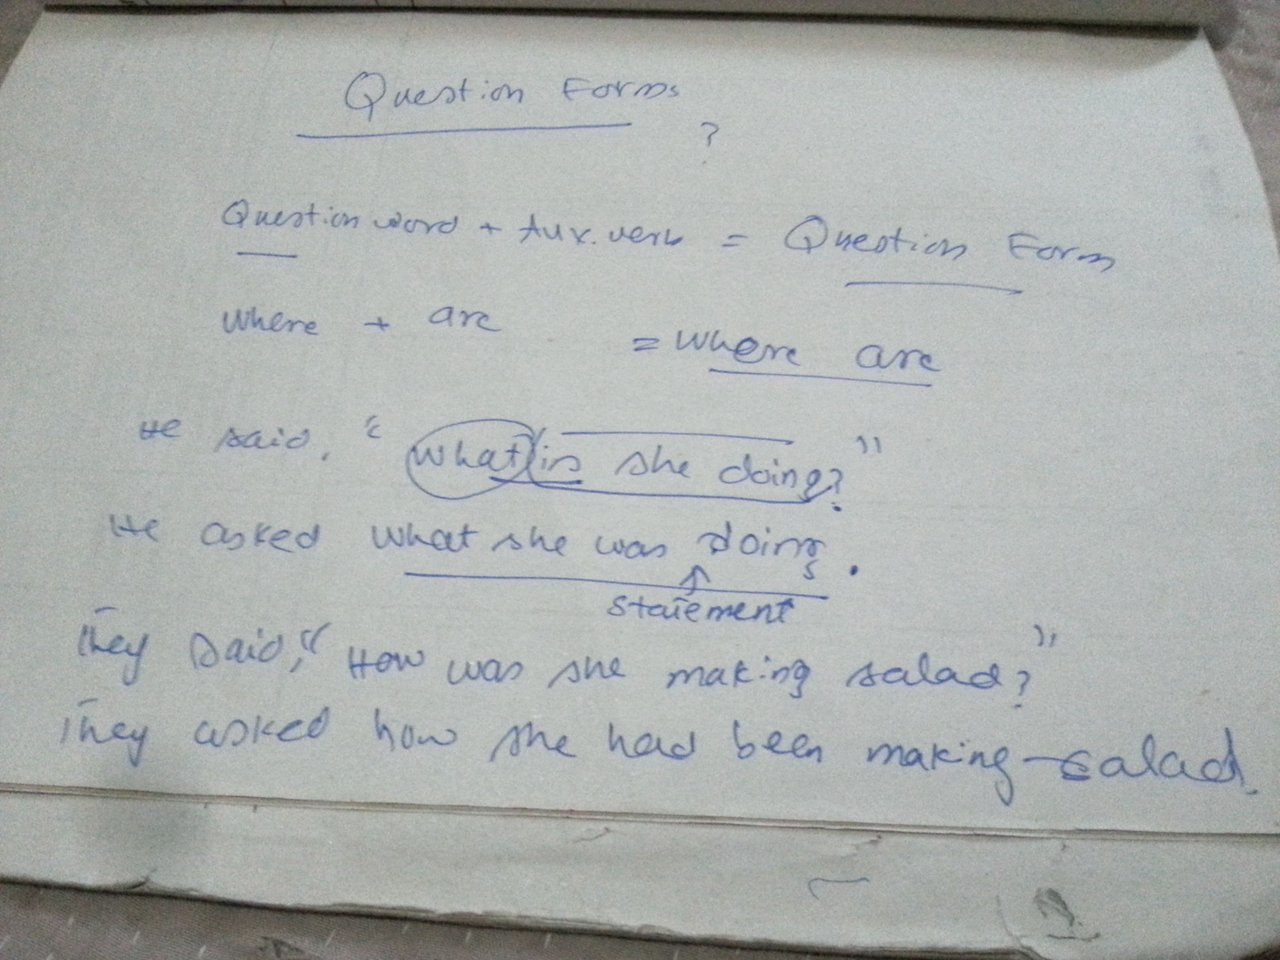 Question Forms
?
Question word + Aux. verb = Question Form
where + are = where are
He said, "what is she doing?"
He asked what she was doing.
statement
They said, "How was she making salad?"
They asked how she had been making salad.